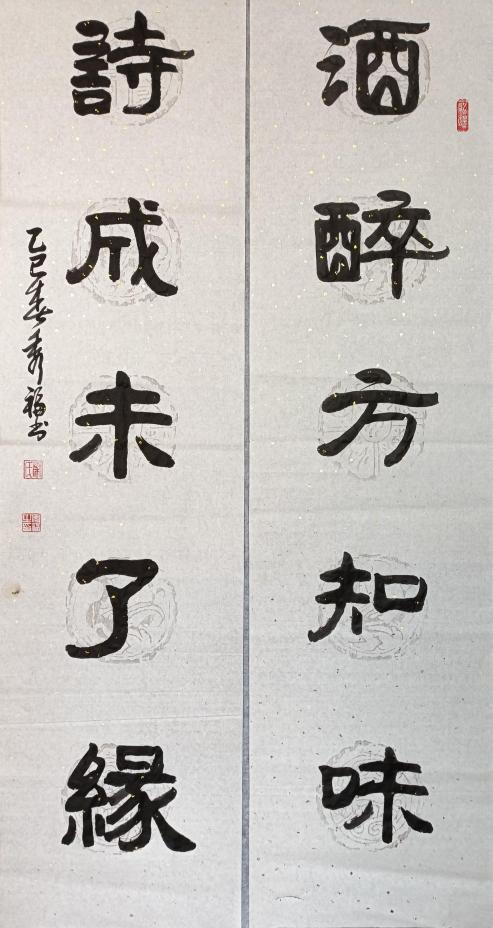 酒醉方知味
詩成未了緣
乙巳春秀福书